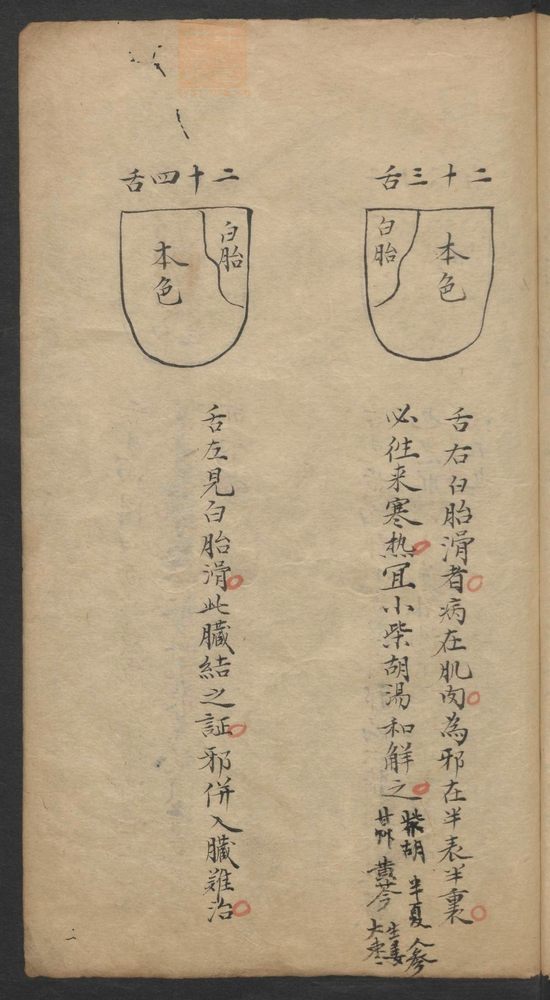 二十三舌
本色
白胎
舌右白胎滑者病在肌肉為邪在半表半裏
必往来寒热宜小柴胡湯和解之
柴胡 半夏 人参
甘艸 黄芩 生姜 大枣
二十四舌
白胎
本色
舌左見白胎滑此臓結之証邪併入臓難治